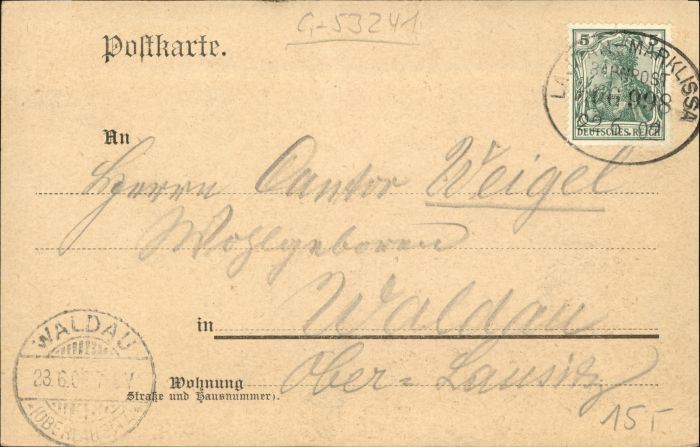 G-53241
Postkarte.
5
DEUTSCHES REICH
MARKLISSA
BAHNPOST
ZUG 998
An
Herrn Cantor Weigel
Wohlgeboren
in Waldau
Ober-Lausitz
Wohnung
(Straße und Hausnummer).
WALDAU
23.6.0
15